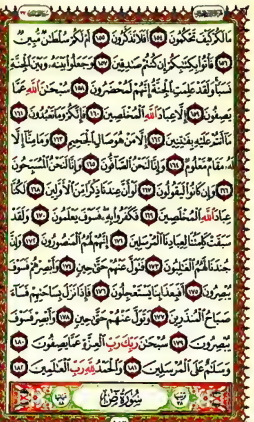 مَا لَكُمْ كَيْفَ تَحْكُمُونَ ١٥٤ أَفَلَا تَذَكَّرُونَ ١٥٥ أَمْ لَكُمْ سُلْطَٰنٌ مُّبِينٌ
١٥٦ فَأْتُوا۟ بِكِتَٰبِكُمْ إِن كُنتُمْ صَٰدِقِينَ ١٥٧ وَجَعَلُوا۟ بَيْنَهُۥ وَبَيْنَ ٱلْجِنَّةِ
نَسَبًا وَلَقَدْ عَلِمَتِ ٱلْجِنَّةُ إِنَّهُمْ لَمُحْضَرُونَ ١٥٨ سُبْحَٰنَ ٱللَّهِ عَمَّا
يَصِفُونَ ١٥٩ إِلَّا عِبَادَ ٱللَّهِ ٱلْمُخْلَصِينَ ١٦٠ فَإِنَّكُمْ وَمَا تَعْبُدُونَ ١٦١
مَآ أَنتُمْ عَلَيْهِ بِفَٰتِنِينَ ١٦٢ إِلَّا مَنْ هُوَ صَالِ ٱلْجَحِيمِ ١٦٣ وَمَا مِنَّآ إِلَّا
لَهُۥ مَقَامٌ مَّعْلُومٌ ١٦٤ وَإِنَّا لَنَحْنُ ٱلصَّآفُّونَ ١٦٥ وَإِنَّا لَنَحْنُ ٱلْمُسَبِّحُونَ
١٦٦ وَإِن كَانُوا۟ لَيَقُولُونَ ١٦٧ لَوْ أَنَّ عِندَنَا ذِكْرًا مِّنَ ٱلْأَوَّلِينَ ١٦٨ لَكُنَّا
عِبَادَ ٱللَّهِ ٱلْمُخْلَصِينَ ١٦٩ فَكَفَرُوا۟ بِهِۦ فَسَوْفَ يَعْلَمُونَ ١٧٠ وَلَقَدْ
سَبَقَتْ كَلِمَتُنَا لِعِبَادِنَا ٱلْمُرْسَلِينَ ١٧١ إِنَّهُمْ لَهُمُ ٱلْمَنصُورُونَ ١٧٢ وَإِنَّ
جُندَنَا لَهُمُ ٱلْغَٰلِبُونَ ١٧٣ فَتَوَلَّ عَنْهُمْ حَتَّىٰ حِينٍ ١٧٤ وَأَبْصِرْهُمْ فَسَوْفَ
يُبْصِرُونَ ١٧٥ أَفَبِعَذَابِنَا يَسْتَعْجِلُونَ ١٧٦ فَإِذَا نَزَلَ بِسَاحَتِهِمْ فَسَآءَ
صَبَاحُ ٱلْمُنذَرِينَ ١٧٧ وَتَوَلَّ عَنْهُمْ حَتَّىٰ حِينٍ ١٧٨ وَأَبْصِرْ فَسَوْفَ
يُبْصِرُونَ ١٧٩ سُبْحَٰنَ رَبِّكَ رَبِّ ٱلْعِزَّةِ عَمَّا يَصِفُونَ ١٨٠
وَسَلَٰمٌ عَلَى ٱلْمُرْسَلِينَ ١٨١ وَٱلْحَمْدُ لِلَّهِ رَبِّ ٱلْعَٰلَمِينَ ١٨٢
سُورَةُ ص